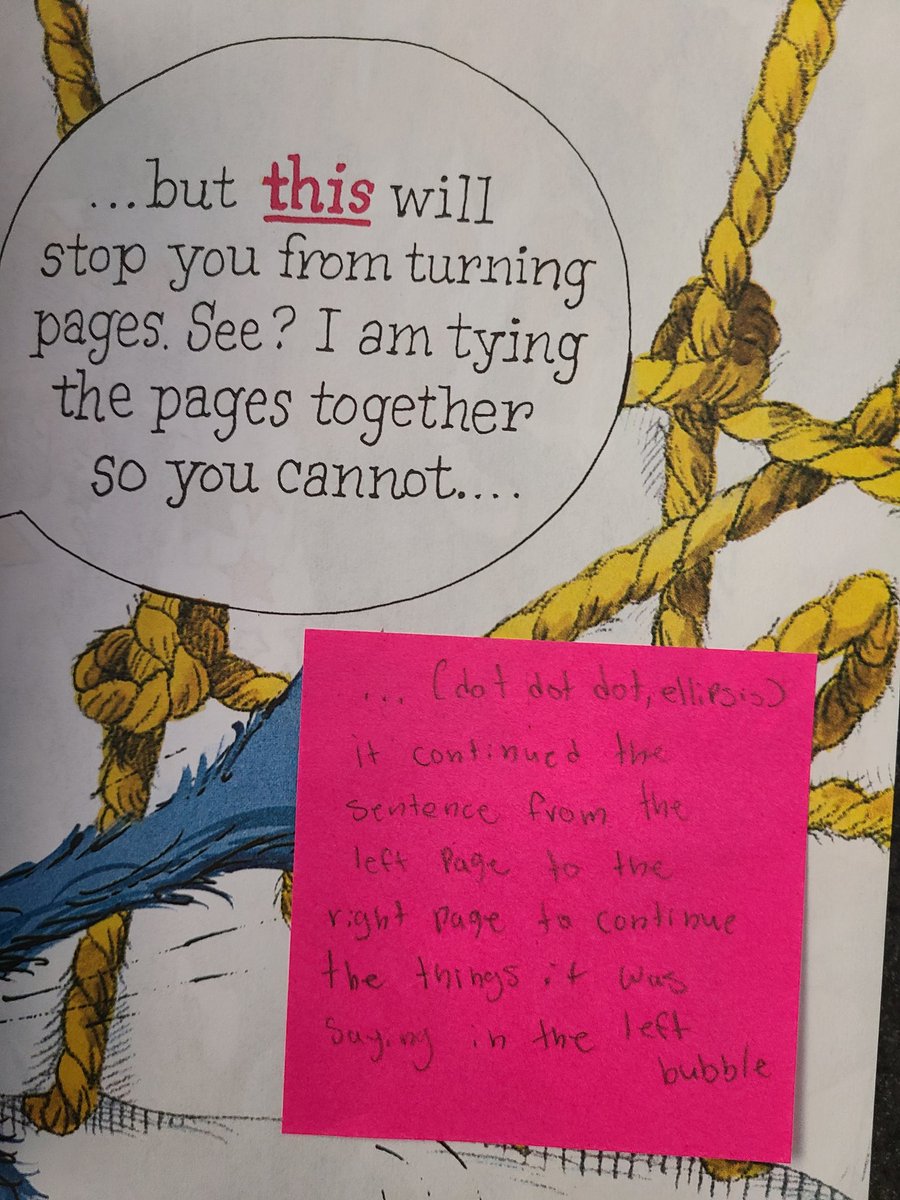 ...but this will
stop you from turning
pages. See? I am tying
the pages together
so you cannot....
... (dot dot dot, ellipsis)
it continued the
sentence from the
left page to the
right page to continue
the things it was
saying in the left
bubble